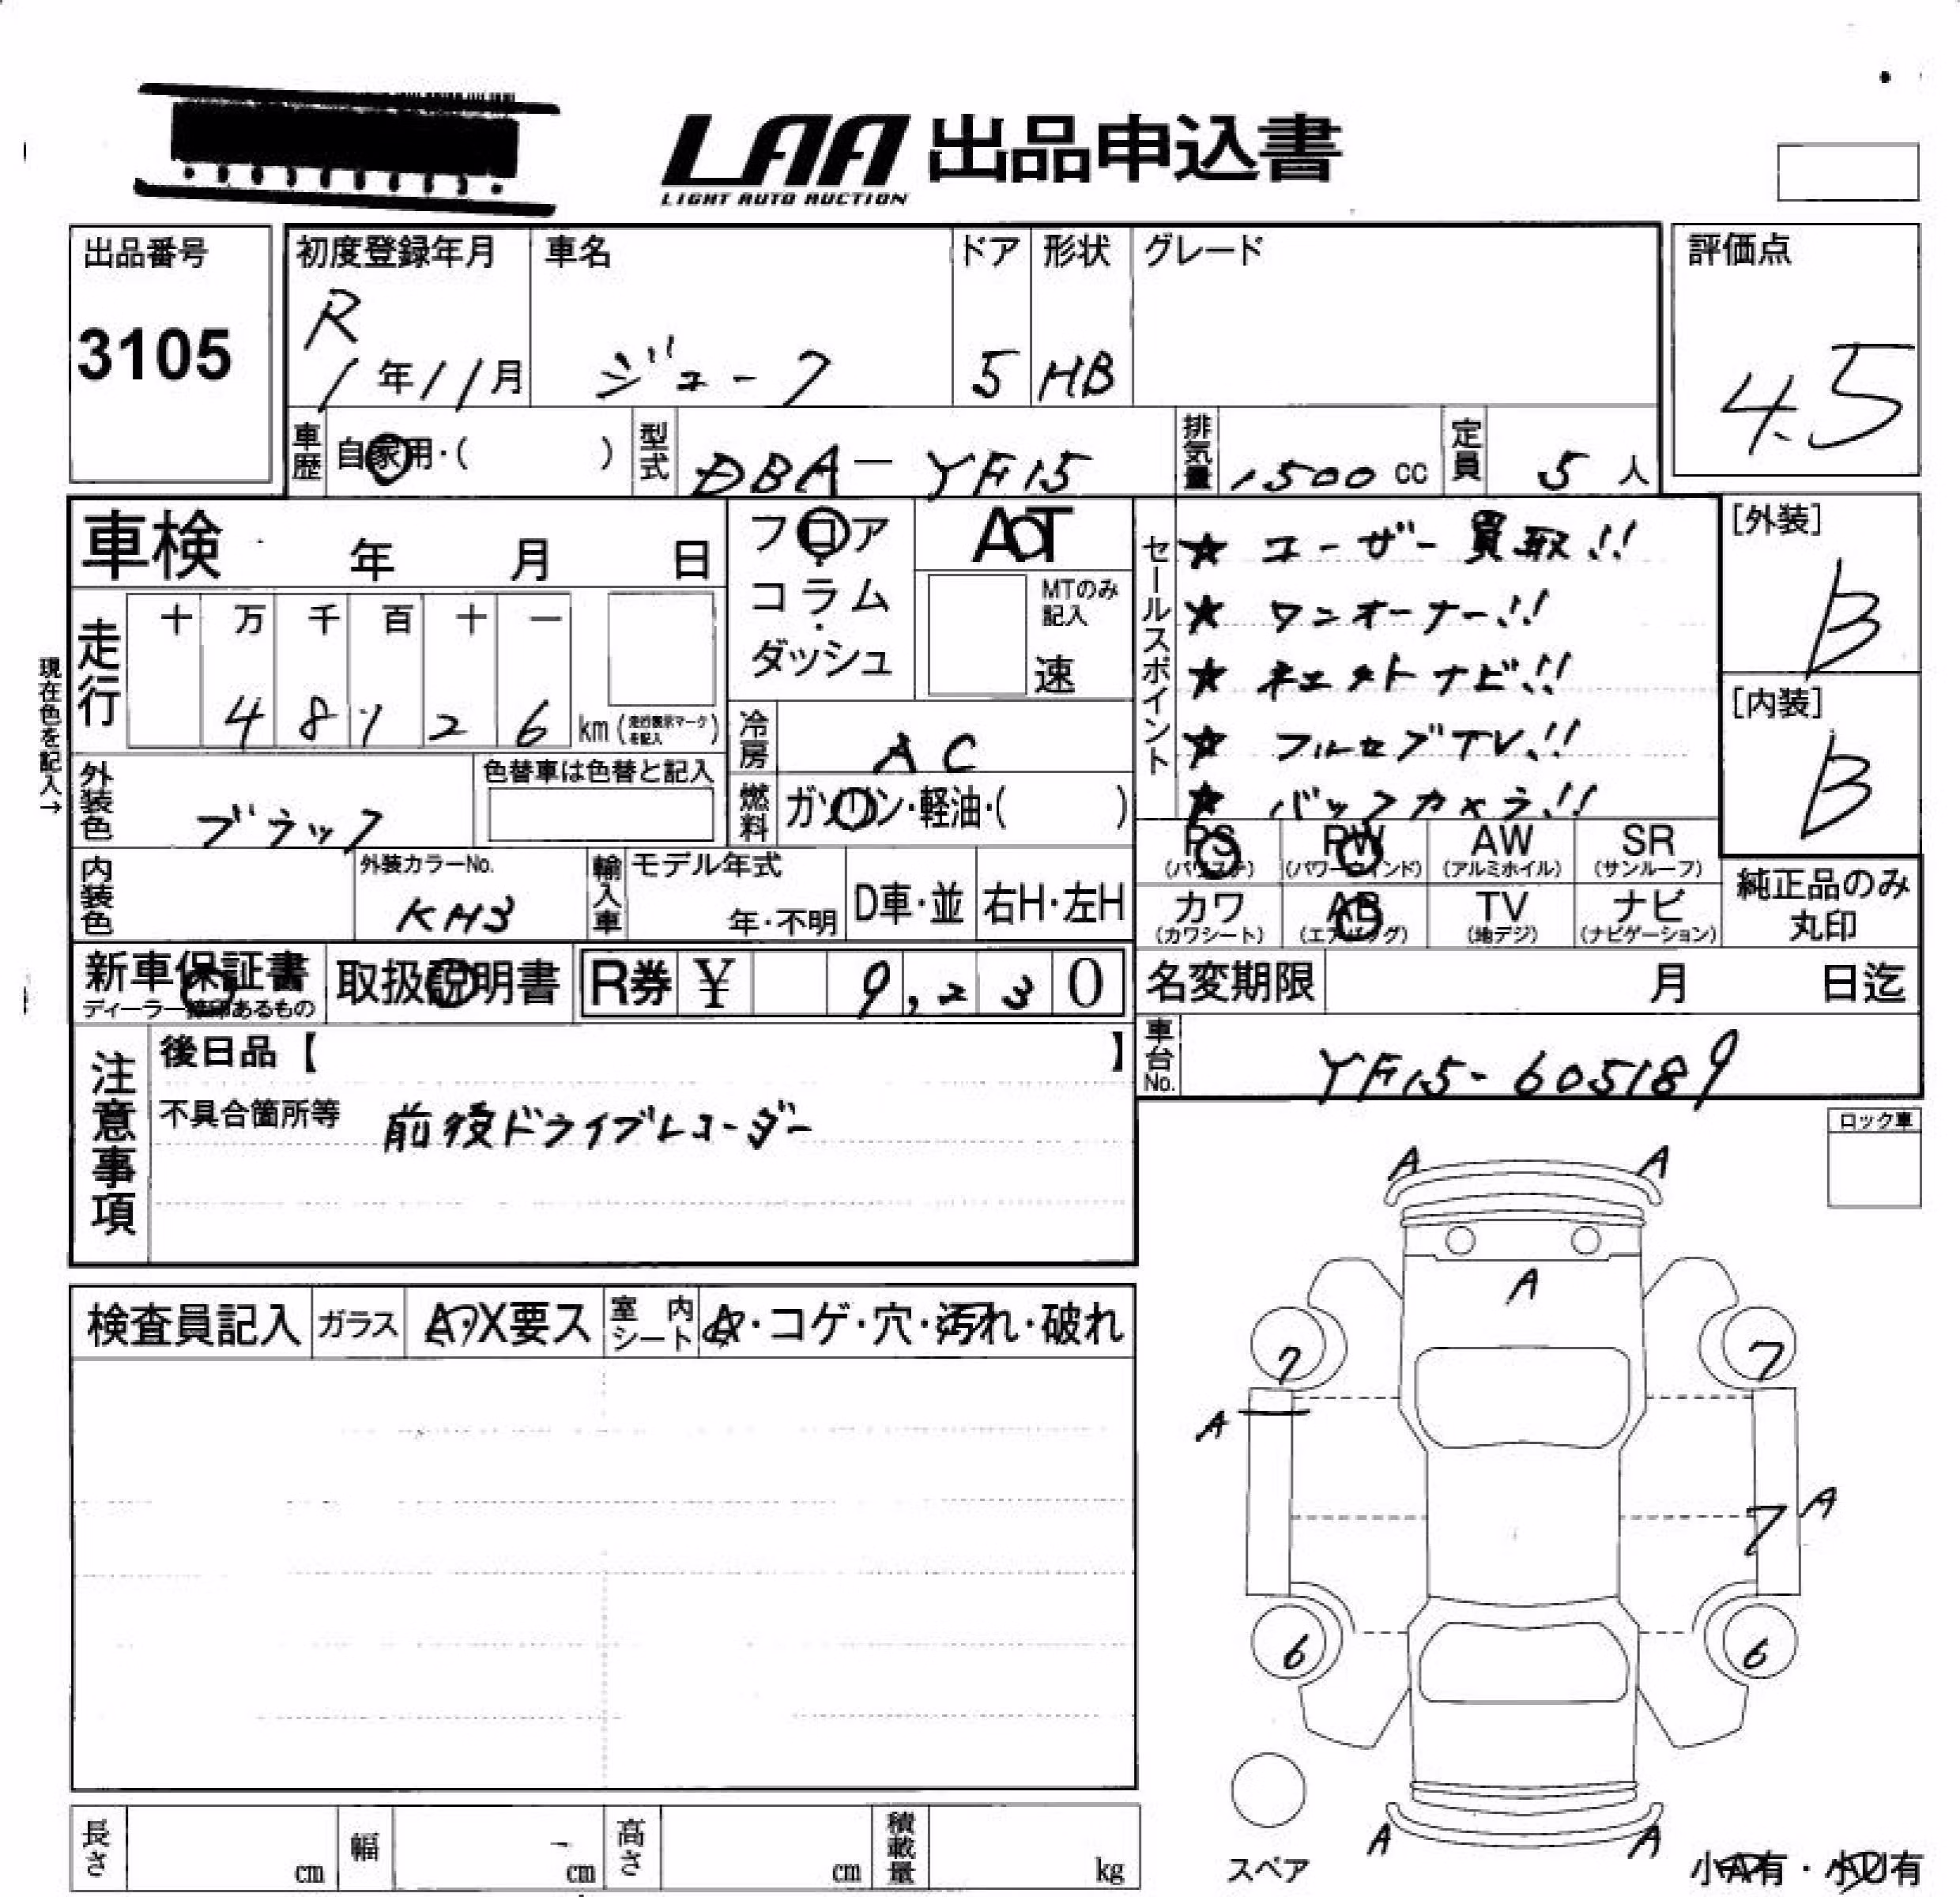 LAA 出品申込書
LIGHT AUTO AUCTION
出品番号
3105
初度登録年月
R
1年11月
車名
ジューク
ドア
5
形状
HB
グレード
評価点
4.5
車歴
自家用・( )
型式
DBA-YF15
排気量
1500 cc
定員
5 人
車検 年 月 日
フロア
コラム
ダッシュ
AT
MTのみ
記入
速
セールスポイント
★ ユーザー買取!!
★ ワンオーナー!!
★ ネクストナビ!!
★ フルセグTV!!
★ バックカメラ!!
[外装]
B
[内装]
B
現在色を記入→
走行
十 万 千 百 十 一
4 8 1 2 6 km (走行表示マークを記入)
冷房
AC
外装色
ブラック
色替車は色替と記入
燃料
ガソリン・軽油・( )
PS
(パワステ)
PW
(パワーウインド)
AW
(アルミホイル)
SR
(サンルーフ)
カワ
(カワシート)
AB
(エアバッグ)
TV
(地デジ)
ナビ
(ナビゲーション)
純正品のみ
丸印
内装色
外装カラーNo.
KH3
輸入車
モデル年式
年・不明
D車・並
右H・左H
新車保証書
ディーラー捺印あるもの
取扱説明書
R券 ¥ 9,230
名変期限 月 日迄
車台No.
YF15-605189
注意事項
後日品【 】
不具合箇所等 前後ドライブレコーダー
ロック車
A A
A
7 7
A
A
7
6 6
A A
スペア
小A有・小U有
検査員記入
ガラス
A・X要ス
室内シート
A・コゲ・穴・汚れ・破れ
長さ cm
幅 cm
高さ cm
積載量 kg